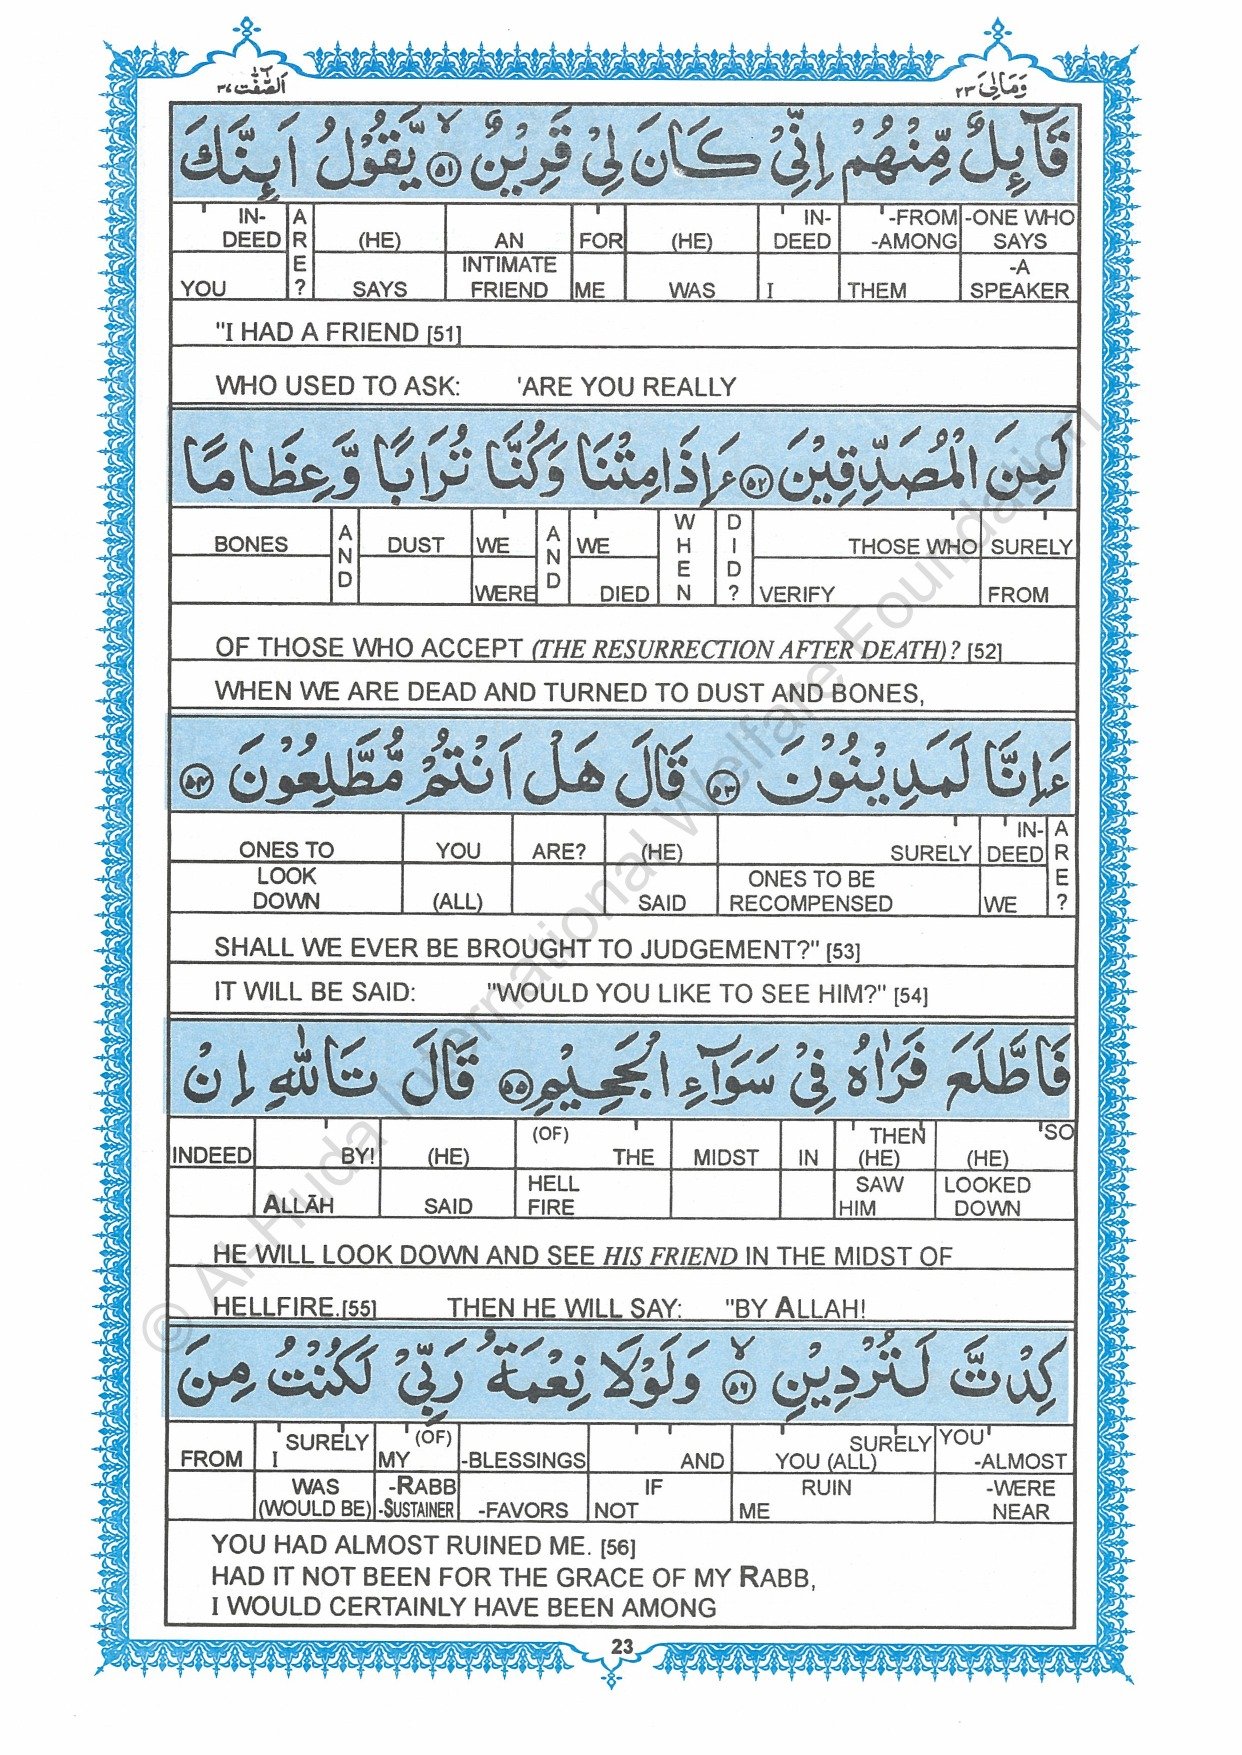 وَمَالِىَ ٢٣
اَلصّٰٓفّٰت ٣٧
قَآىِٕلٌ مِّنْهُمْ اِنِّىْ كَانَ لِىْ قَرِيْنٌ ۙ﴿٥١﴾ يَّقُوْلُ اَىِٕنَّكَ
IN- A -FROM -ONE WHO
DEED R (HE) AN FOR (HE) IN- DEED -AMONG SAYS
E INTIMATE -A
YOU ? SAYS FRIEND ME WAS I THEM SPEAKER
"I HAD A FRIEND [51]
WHO USED TO ASK: 'ARE YOU REALLY
لَمِنَ الْمُصَدِّقِيْنَ ﴿٥٢﴾ ءَاِذَا مِتْنَا وَكُنَّا تُرَابًا وَّعِظَامًا
BONES AND DUST WE AND WE WHEN DID? THOSE WHO SURELY
WERE DIED VERIFY FROM
OF THOSE WHO ACCEPT (THE RESURRECTION AFTER DEATH)? [52]
WHEN WE ARE DEAD AND TURNED TO DUST AND BONES,
ءَاِنَّا لَمَدِيْنُوْنَ ﴿٥٣﴾ قَالَ هَلْ اَنْتُمْ مُّطَّلِعُوْنَ ﴿٥٤﴾
ONES TO YOU ARE? (HE) SURELY IN-DEED ARE?
LOOK ONES TO BE
DOWN (ALL) SAID RECOMPENSED WE
SHALL WE EVER BE BROUGHT TO JUDGEMENT?" [53]
IT WILL BE SAID: "WOULD YOU LIKE TO SEE HIM?" [54]
فَاطَّلَعَ فَرَاٰهُ فِىْ سَوَآءِ الْجَحِيْمِ ﴿٥٥﴾ قَالَ تَاللّٰهِ اِنْ
(OF) THEN SO
INDEED BY! (HE) THE MIDST IN (HE) (HE)
HELL SAW LOOKED
ALLĀH SAID FIRE HIM DOWN
HE WILL LOOK DOWN AND SEE HIS FRIEND IN THE MIDST OF
HELLFIRE.[55] THEN HE WILL SAY: "BY ALLAH!
كِدْتَّ لَتُرْدِيْنِ ۙ﴿٥٦﴾ وَلَوْلَا نِعْمَةُ رَبِّىْ لَكُنْتُ مِنَ
SURELY (OF) SURELY YOU
FROM I MY -BLESSINGS AND YOU (ALL) -ALMOST
WAS -RABB IF RUIN -WERE
(WOULD BE) -SUSTAINER -FAVORS NOT ME NEAR
YOU HAD ALMOST RUINED ME. [56]
HAD IT NOT BEEN FOR THE GRACE OF MY RABB,
I WOULD CERTAINLY HAVE BEEN AMONG
23
© Al-Huda International Welfare Foundation